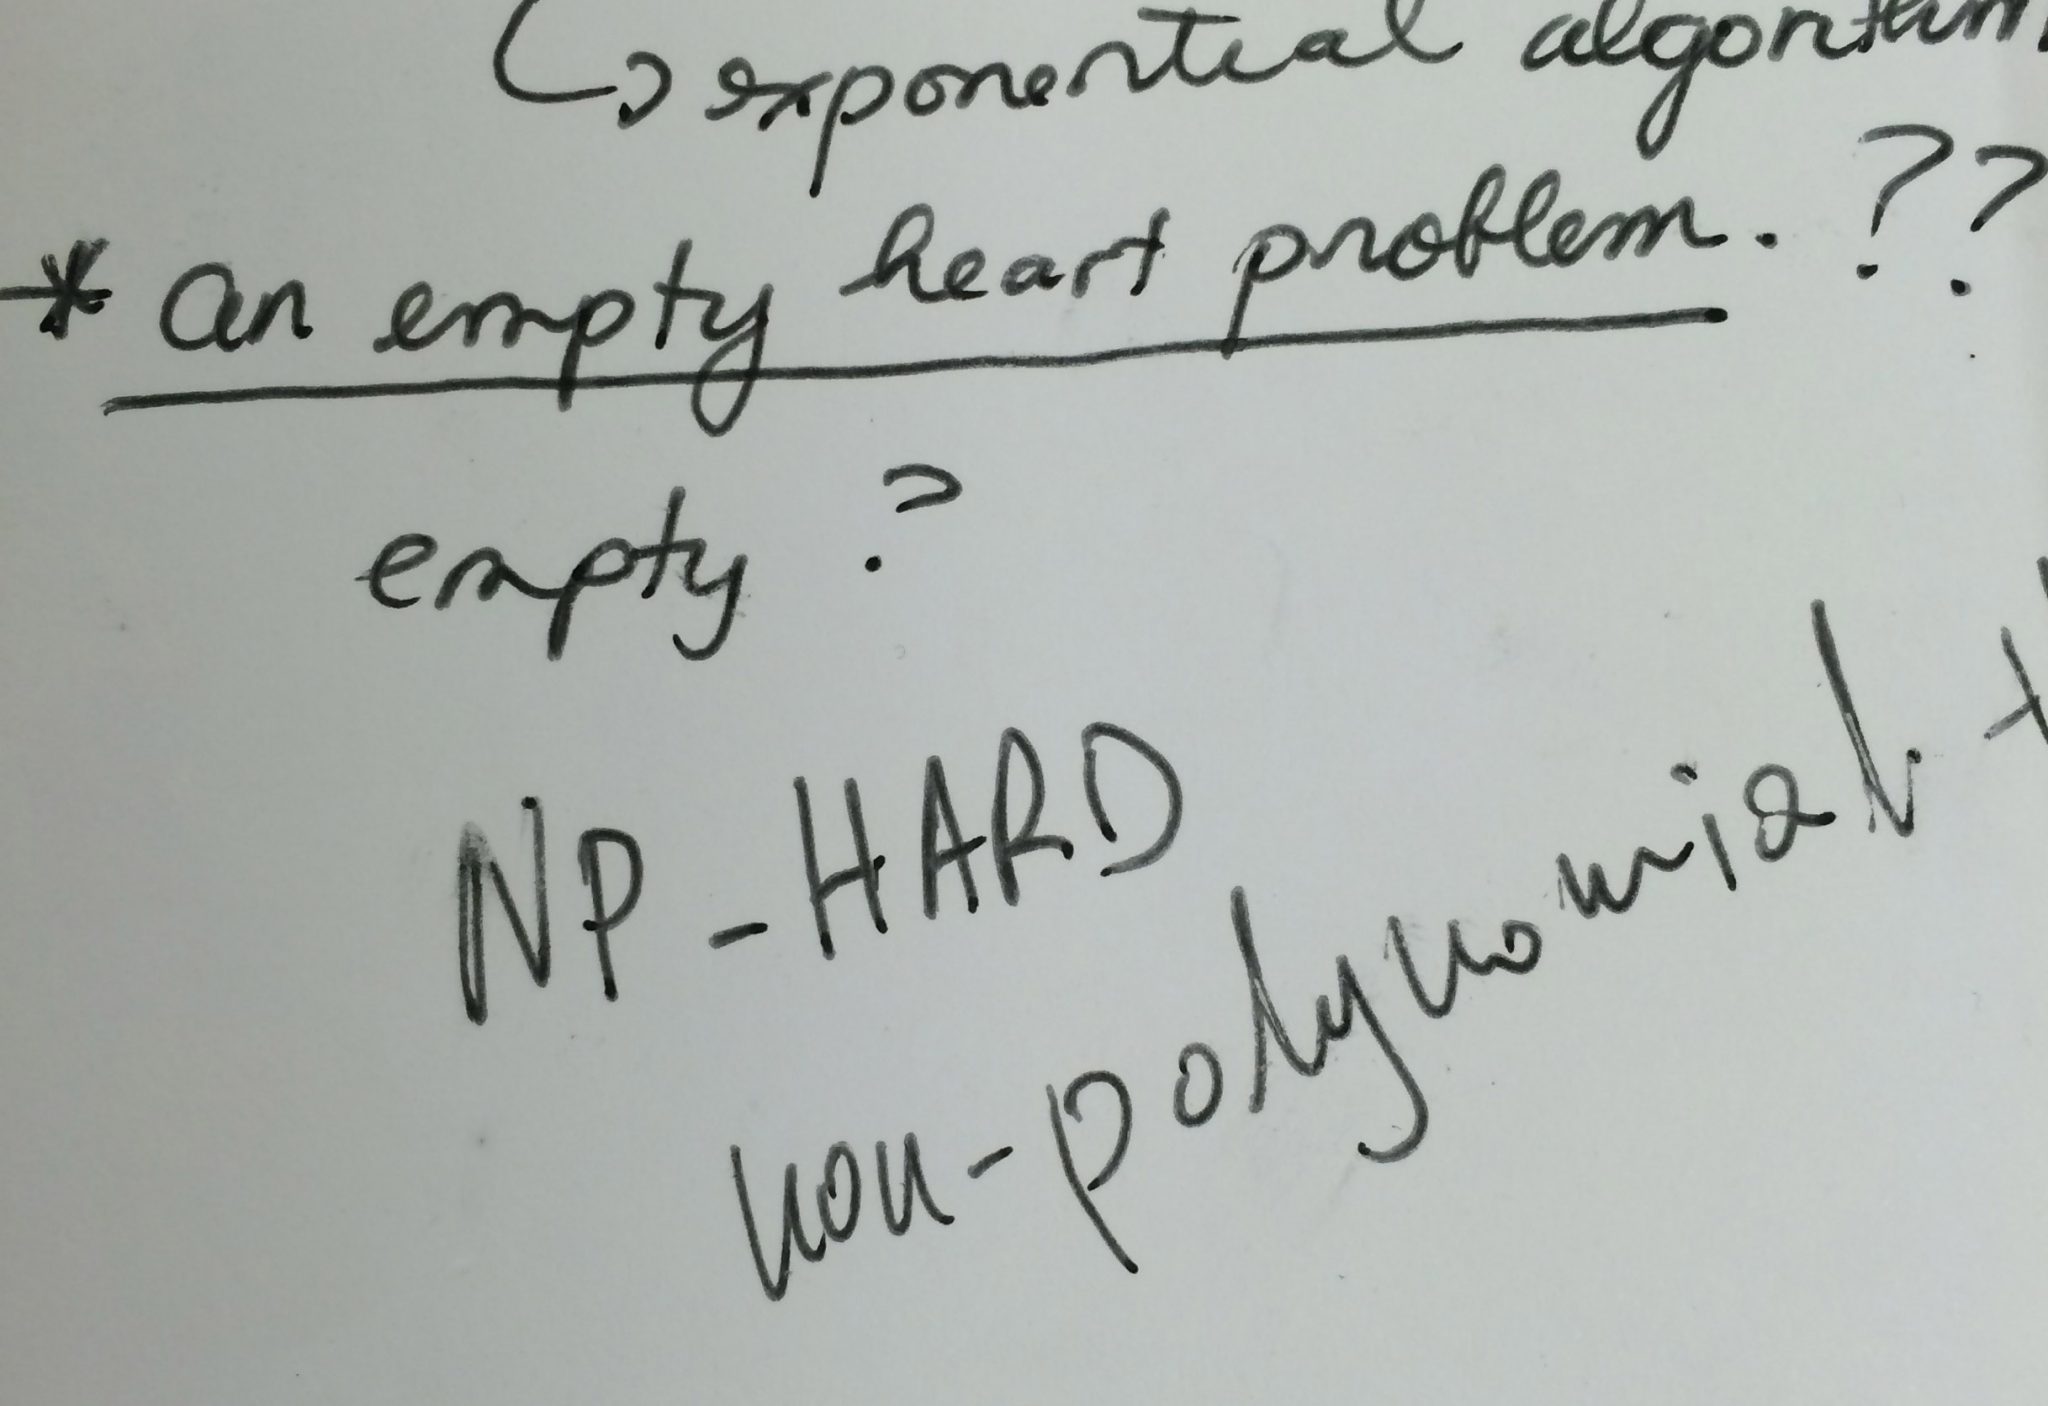 ↳ exponential algorithm
* an empty heart problem. ??
empty ?
NP-HARD
non-polynomial